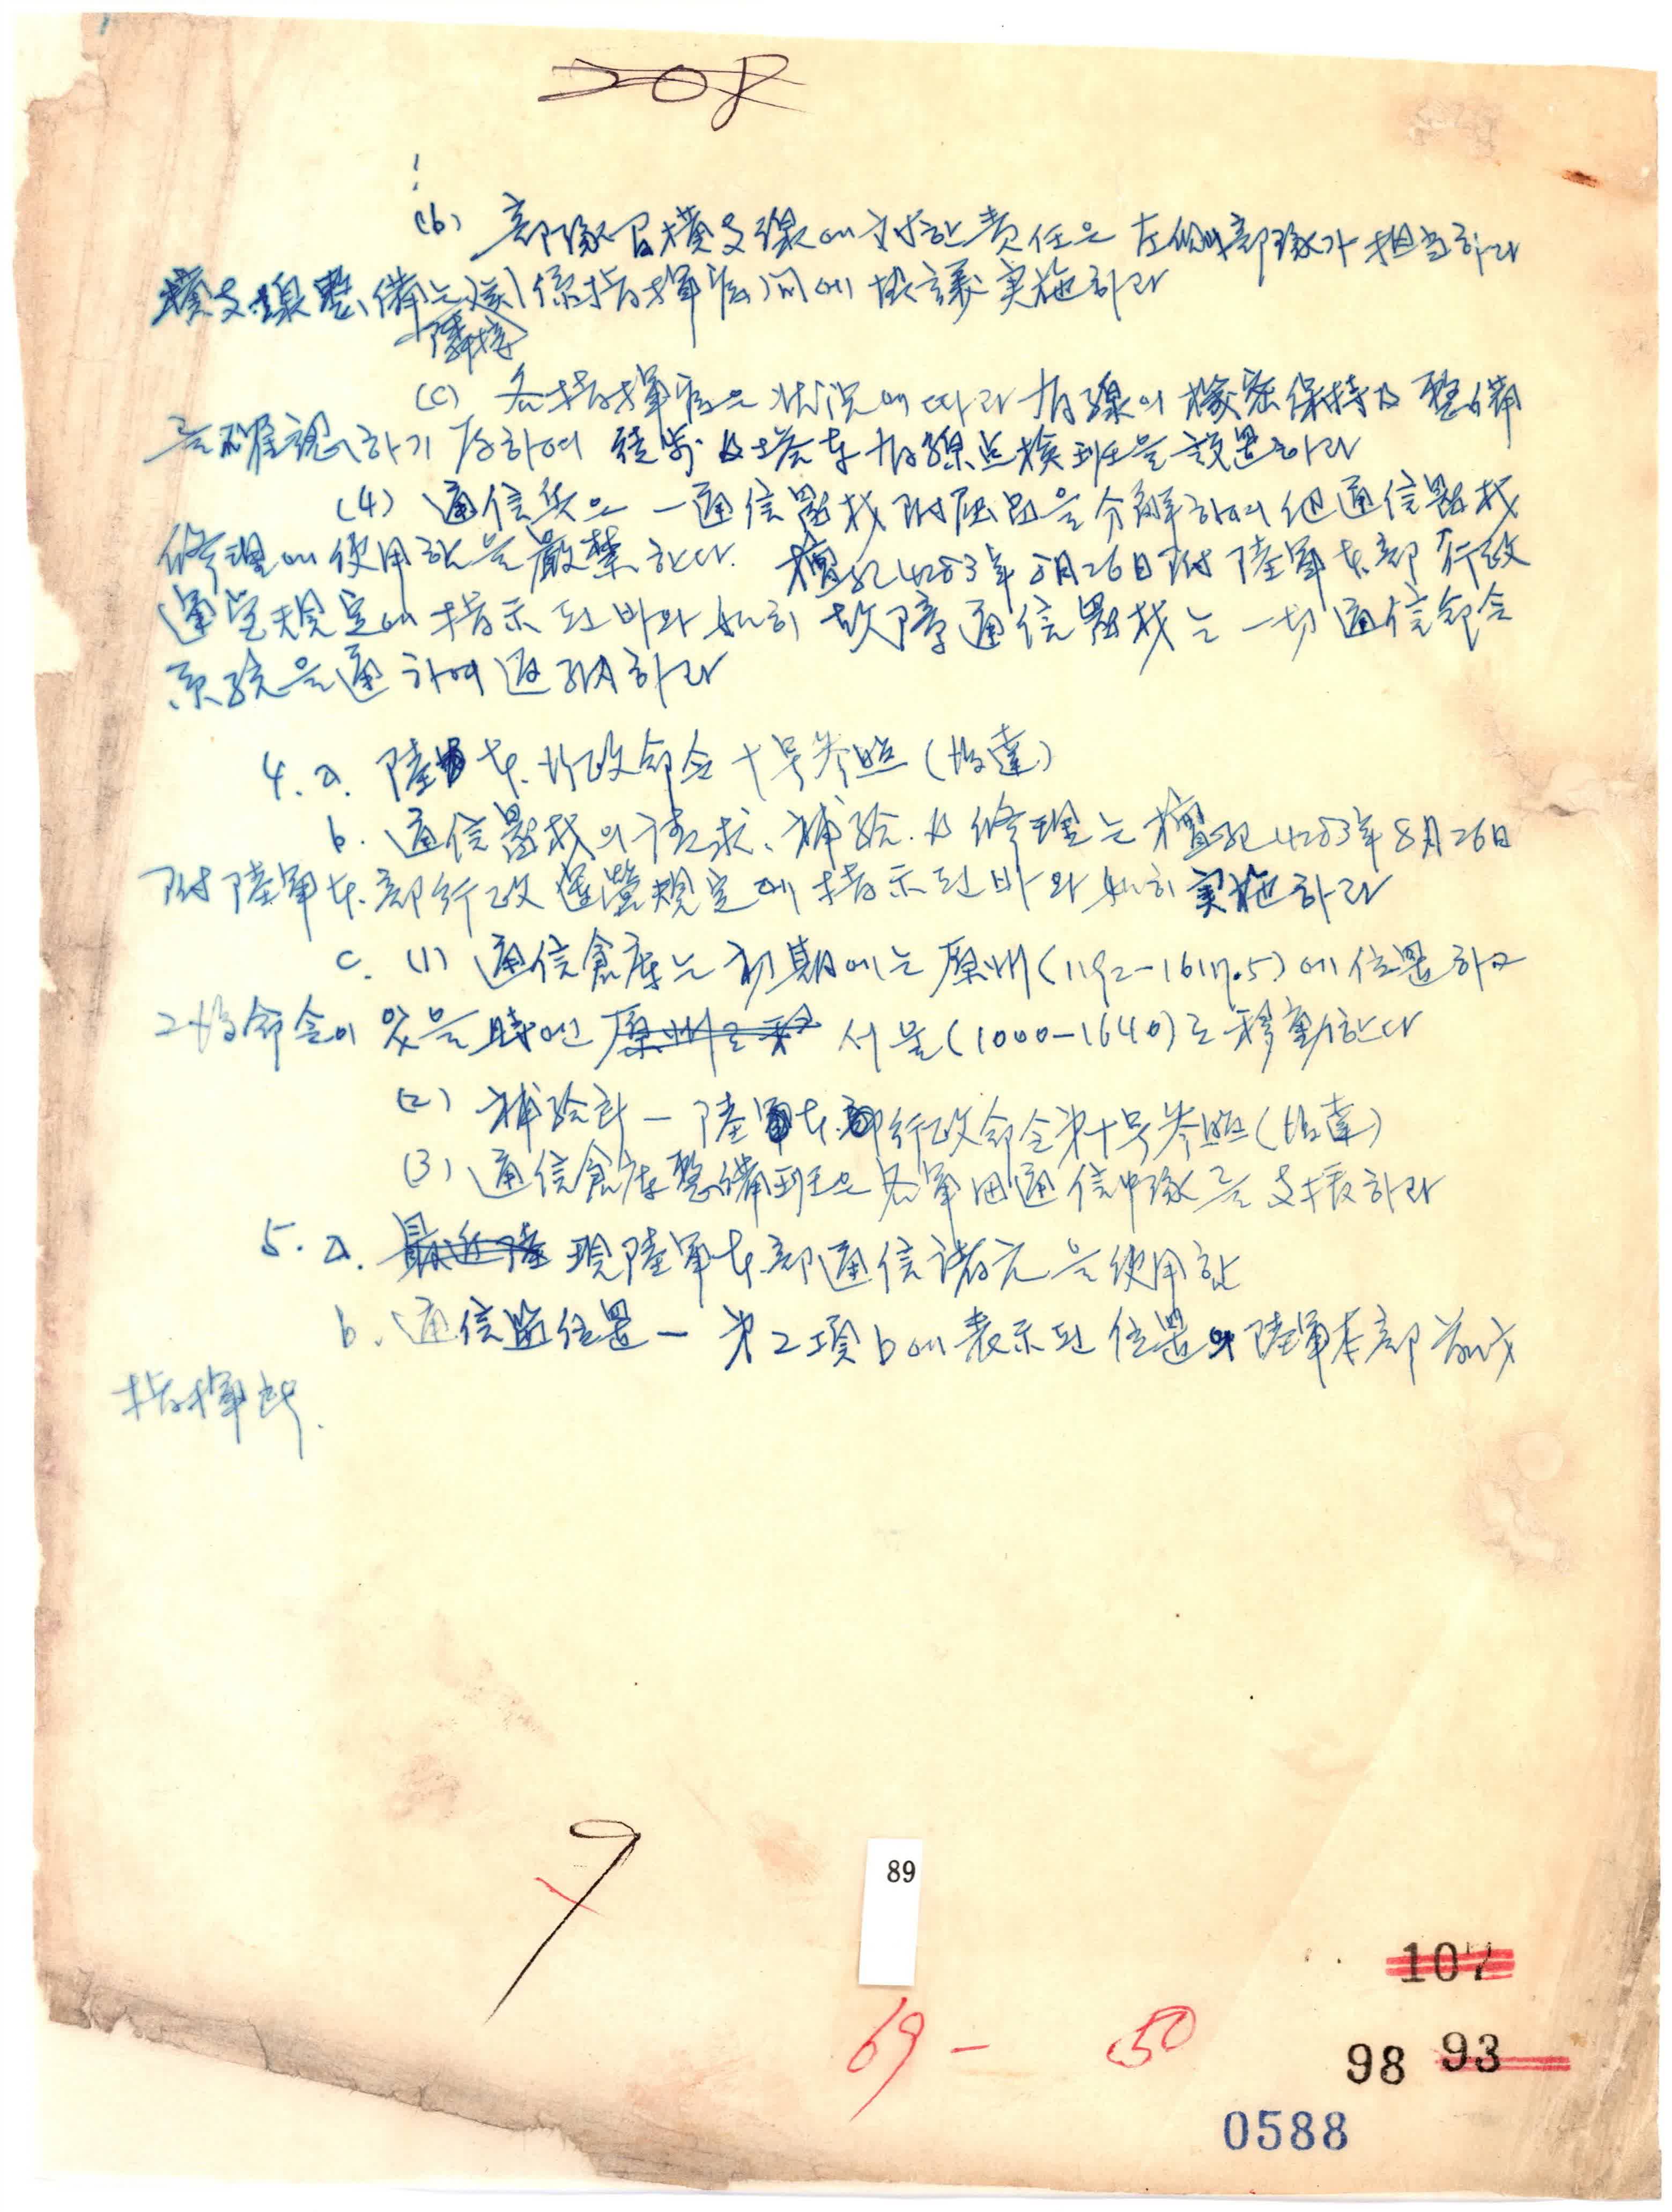 208
(b) 部隊間 橫支線에 対한 責任은 左側部隊가 担当하라
橫支線 整備는 関係指揮官间에 协議 実施하라
隣接
(c) 各指揮官은 状況에 따라 有線의 機密保持 및 整備
를 確認하기 为하여 徒步 及 搭车 有線点検班을 設置하라
(4) 通信兵은 一通信器材 附属品을 分解하여 他通信器材
修理에 使用함을 嚴禁한다. 檀紀4283年 8月26日附 陸軍本部 行政
運営規定에 指示된 바와 如히 故障 通信器材는 一切 通信部令
系統을 通하여 返納하라
4. a. 陸軍本. 行政命令 十号参照 (追達)
b. 通信器材의 请求、補給 及 修理는 檀紀4283年 8月26日
附 陸軍本部 行政 運營規定에 指示된 바와 如히 実施하라
c. (1) 通信倉庫는 初期에는 原州(1192-1617.5)에 位置하고
그後 命令이 있을 時에는 서울(1000-1640)로 移動한다
(2) 補給所 - 陸軍本部行政命令第十号参照(追達)
(3) 通信倉庫整備班은 各軍団通信中隊를 支援하라
5. a. 現陸軍本部通信諸元을 使用함
b. 通信所位置 - 第2項 b에 表示된 位置의 陸軍本部 前方
指揮所.
7
89
107
69 - 50
98 93
0588